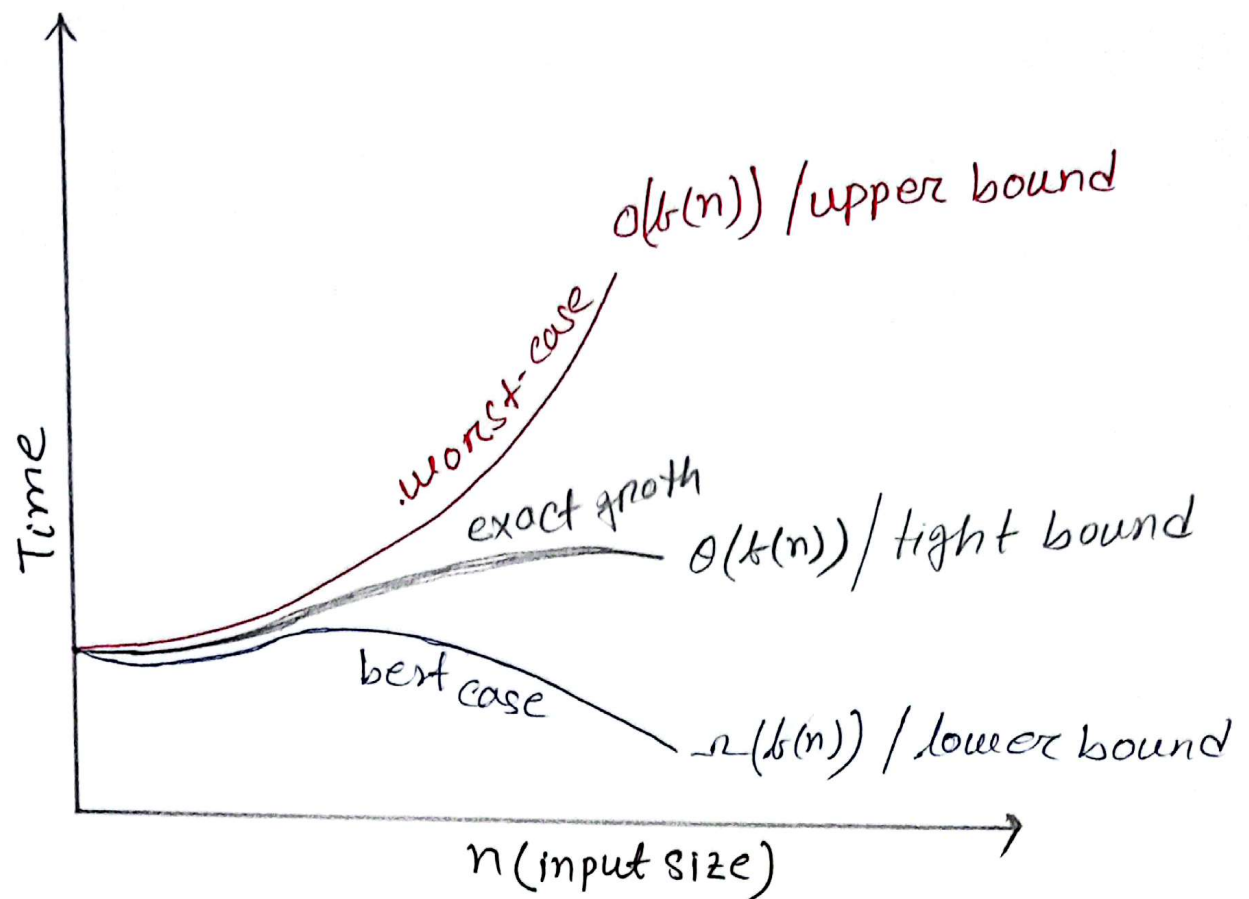 O(f(n)) / upper bound
worst-case
exact groth
θ(f(n)) / tight bound
best case
Ω(f(n)) / lower bound
Time
n (input size)